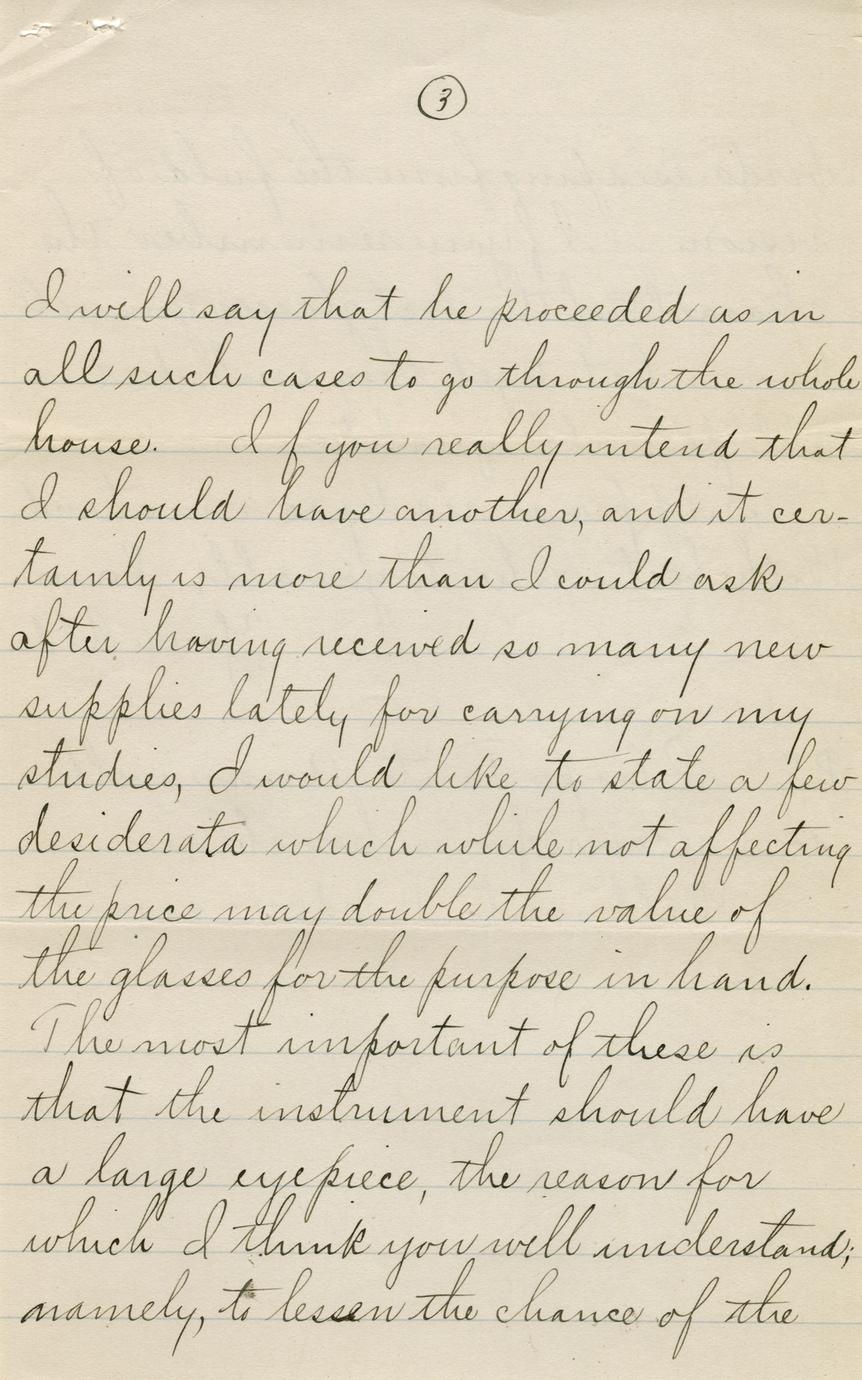 3
I will say that he proceeded as in
all such cases to go through the whole
house. If you really intend that
I should have another, and it cer-
tainly is more than I could ask
after having received so many new
supplies lately for carrying on my
studies, I would like to state a few
desiderata which while not affecting
the price may double the value of
the glasses for the purpose in hand.
The most important of these is
that the instrument should have
a large eyepiece, the reason for
which I think you well understand;
namely, to lessen the chance of the